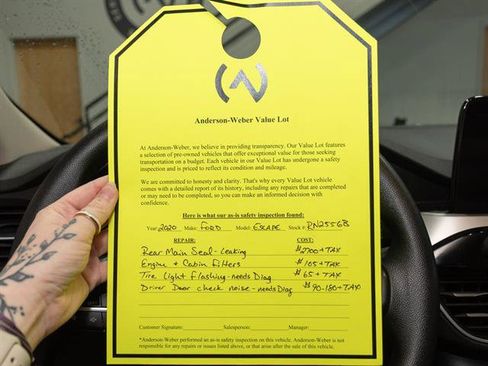 Anderson-Weber Value Lot
At Anderson-Weber, we believe in providing transparency. Our Value Lot features
a selection of pre-owned vehicles that offer exceptional value for those seeking
transportation on a budget. Each vehicle in our Value Lot has undergone a safety
inspection and is priced to reflect its condition and mileage.
We are committed to honesty and clarity. That's why every Value Lot vehicle
comes with a detailed report of its history, including any repairs that are completed
or may need to be completed, so you can make an informed decision with
confidence.
Here is what our as-is safety inspection found:
Year: 2020 Make: FORD Model: ESCAPE Stock #: PN2556B
REPAIR: COST:
Rear Main Seal - Leaking $2700+TAX
Engine + Cabin Filters $105+TAX
Tire Light Flashing-needs Diag $65+TAX
Driver Door check noise-needs Diag $90-180+TAX
Customer Signature: Salesperson: Manager:
*Anderson-Weber performed an as-is safety inspection on this vehicle. Anderson-Weber is not
responsible for any repairs or issues listed above, or that arise after the sale of this vehicle.